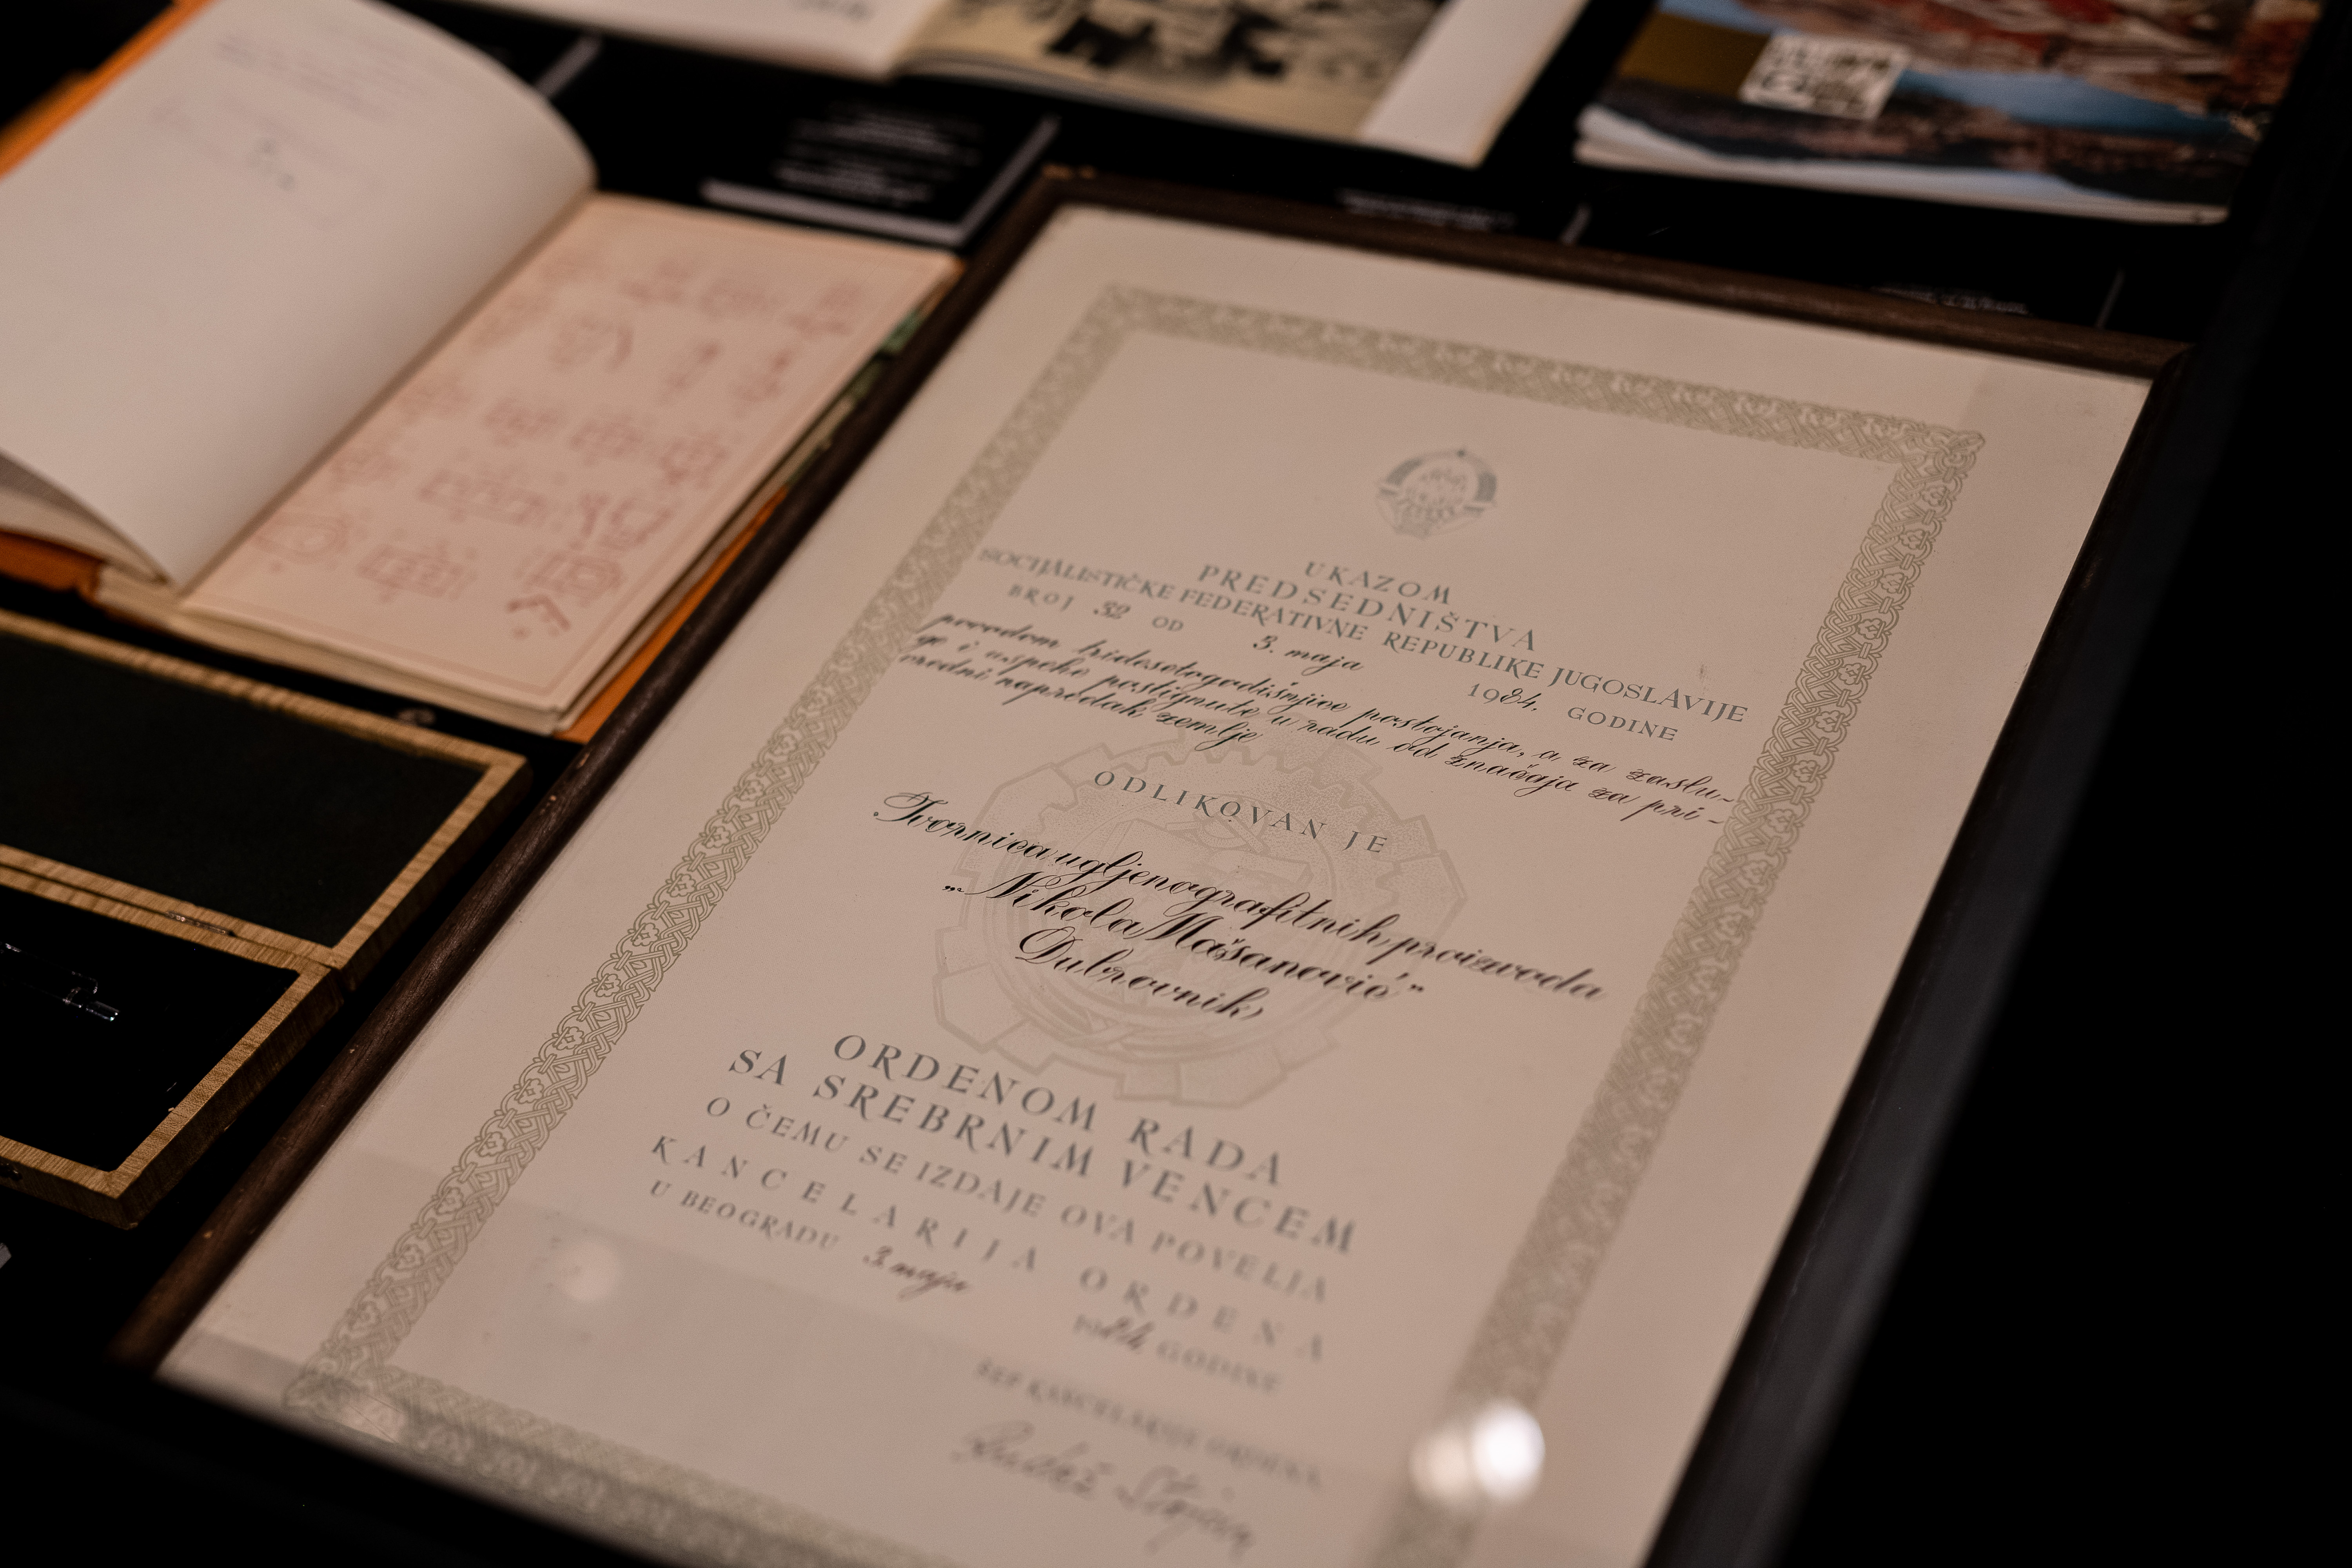 UKAZOM
PREDSEDNIŠTVA
SOCIJALISTIČKE FEDERATIVNE REPUBLIKE JUGOSLAVIJE
BROJ 32 OD 3. maja 1984. GODINE
povodom tridesetogodišnjice postojanja, a za zaslu-
ge i uspehe postignute u radu od značaja za pri-
vredni napredak zemlje
ODLIKOVAN JE
Tvornica ugljenografitnih proizvoda
„Nikola Mašanović"
Dubrovnik
ORDENOM RADA
SA SREBRNIM VENCEM
O ČEMU SE IZDAJE OVA POVELJA
KANCELARIJA ORDENA
U BEOGRADU 3. maja 1984 GODINE
ŠEF KANCELARIJE ORDENA